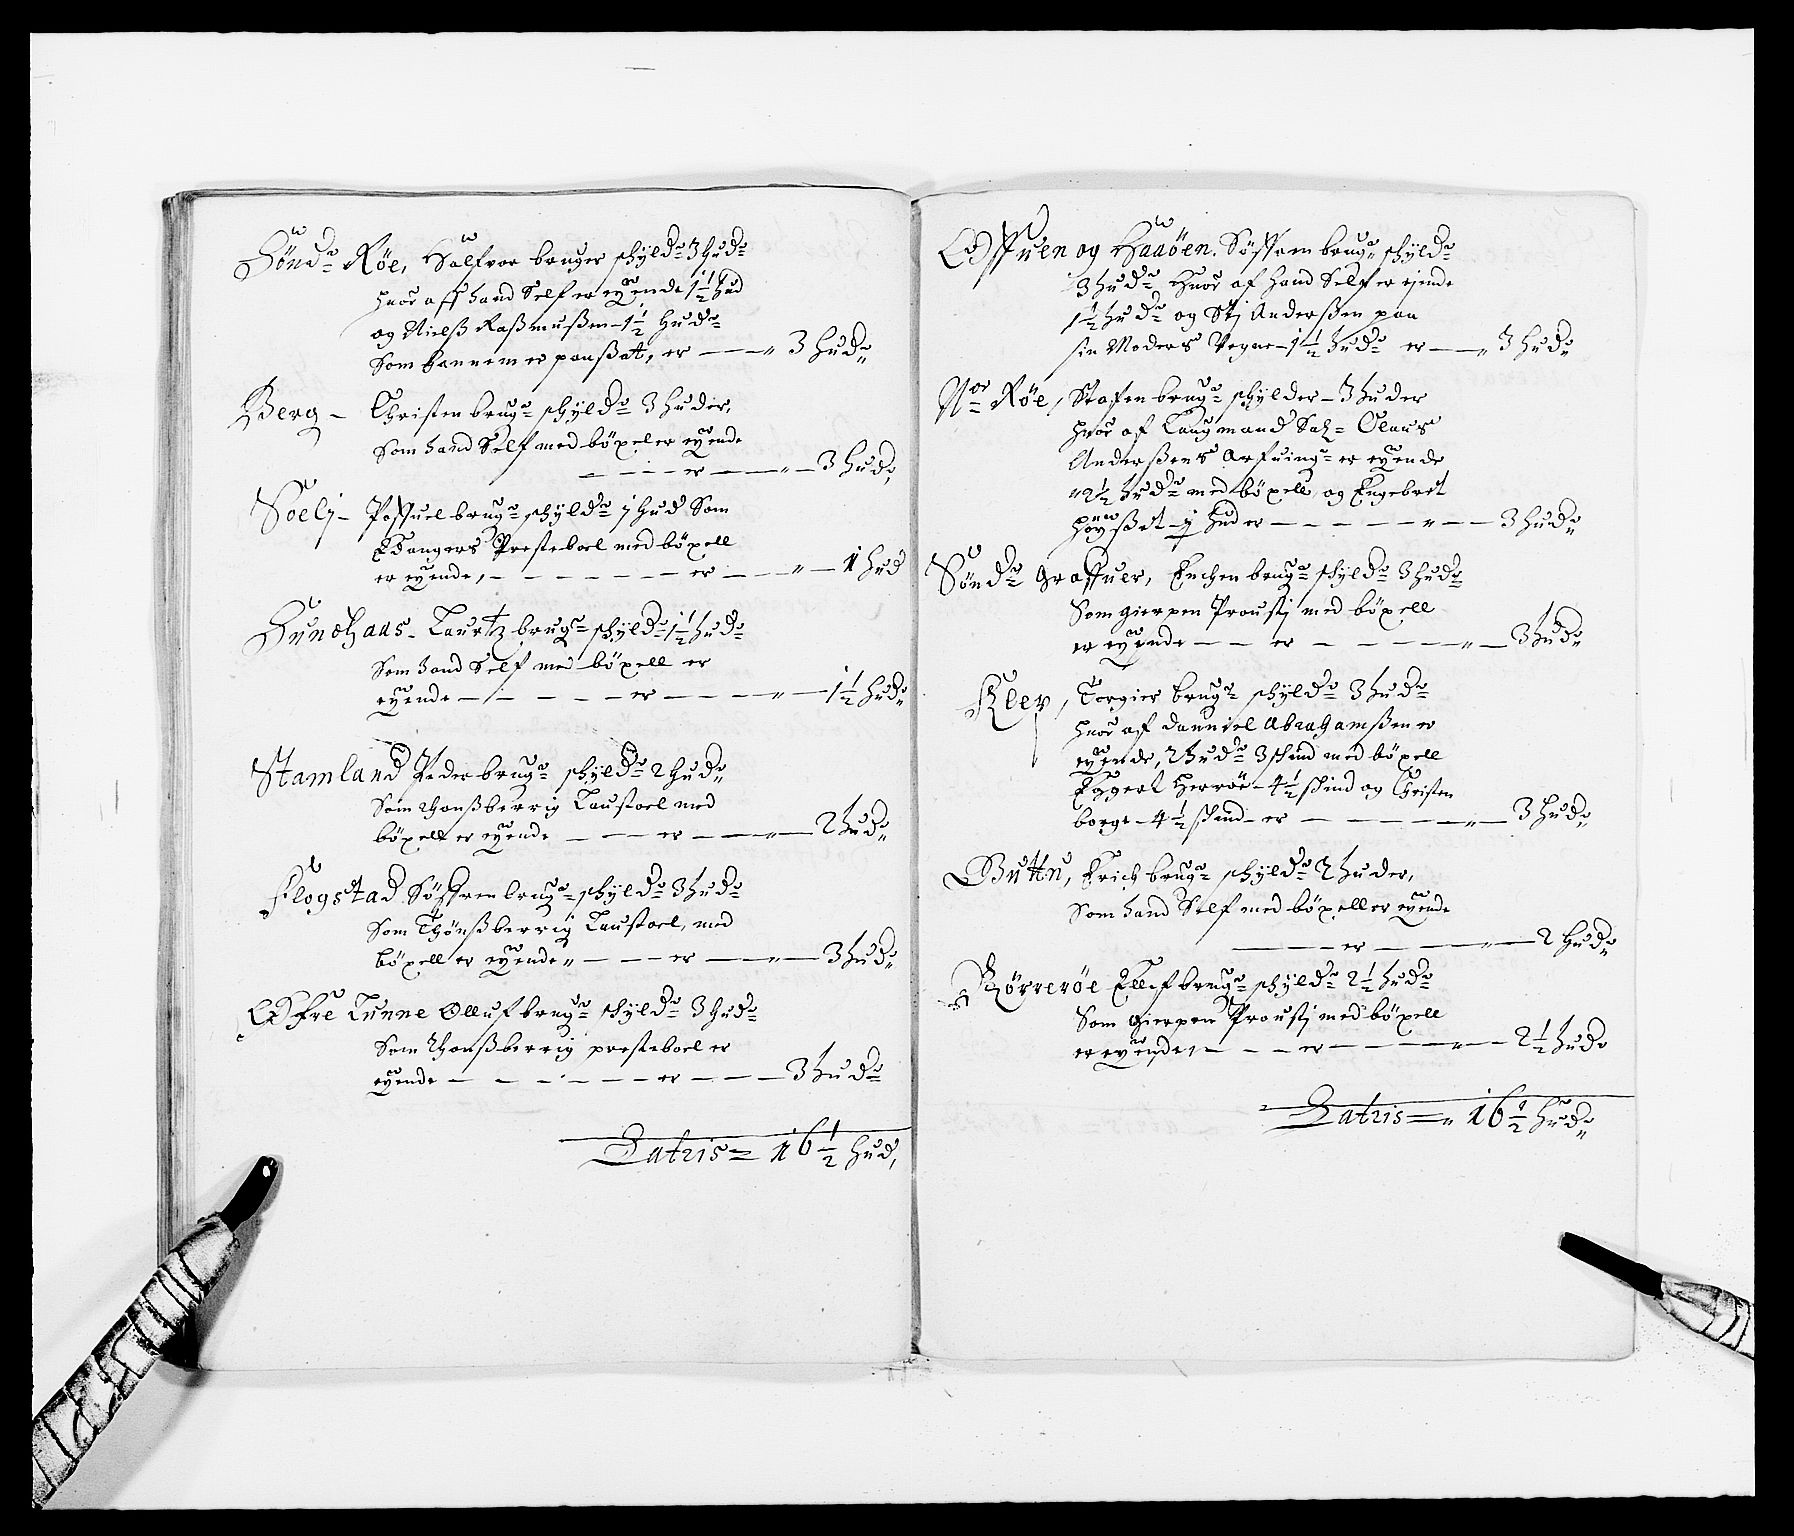 Sønd: Røe, Halfvor bruger schyld: 3 hud:
huor aff hand Self er eyende 1½ hud
og Nielß Raßmußen 1½ Hud:
Som hannem er panßat, er — 3 Hud:
Berg – Christen brug: schyld: 3 huder,
Som hand Self med böxel er eyende
— er — 3 hud,
Soelj – Poffuel brug: schyld: j hud Som
Eidangers Presteboel med böxell
er eyende, — er — 1 hud
Hund Haas – Lauritz brug: schyld: 1½ hud:
Som hand Self med böxell er
eyende — er — 1½ Hud:
Stamland Peder brug: schyld: 2 hud:
Som Thonßberrig Laustoel med
böxell er eyende — er — 2 hud:
Flogstad Söffren brug: schyld: 3 hud:
Som Thönßberrig Laustoel, med
böxell er eyende — er — 3 hud:
Øfre Lunne Olluf brug: schyld: 3 hud:
Som Thonßberrig presteboel er
eyende — er — 3 hud:
Latris = 16½ hud,
Offuen og Haaöen. Söffren brug: schyld:
3 hud: Huor af hand Self er ejende
1½ hud: og Stj Anderßen paa
sin Moders Vegne – 1½ hud: er — 3 hud:
Nor: Røe, Stafen brug: schylder – 3 huder
huor af Laugmand Sal= Olaus
Anderßens Arfuing: er eyende
2½ hud: med böxell, og Engebret
Høyßet – ½ hud er — 3 hud:
Sönd: Graffuer, Erichen brug: schyld: 3 hud:
Som gierpen Proustj med böxell
er eyende — er — 3 hud:
Klep, Torgier brug: schyld: 3 hud:
huor af Danniel Abrahamßen er
eyende, 2 hud: 3 skind med böxell
Eggert Herröe – 4½ skind og Christen
borge – 4½ skind – er — 3 hud:
Buttn, Erich brug: schyld: 2 huder,
Som hand Self med böxell er eyende
— er — 2 hud:
Börreröe Ellef brug: schyld: 2½ hud:
Som gierpen Proustj med böxell
er eyende, — er — 2½ hud:
Latris = 16½ hud: